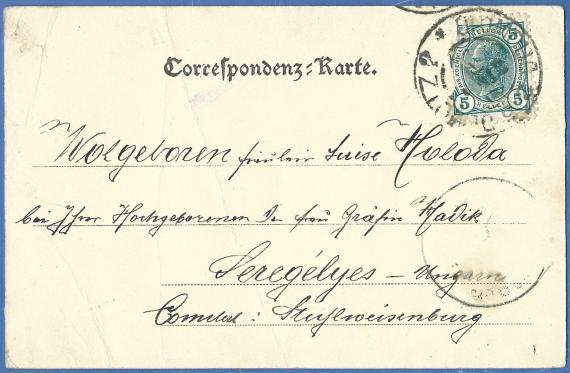 Correspondenz-Karte.
5 HELLER 5
Wolgeboren fräulein Luise Holoda
bei Ihrer Hochgeborenen der frau Gräfin Hadik
Seregélyes – Ungarn
Comitat: Stuhlweisenburg